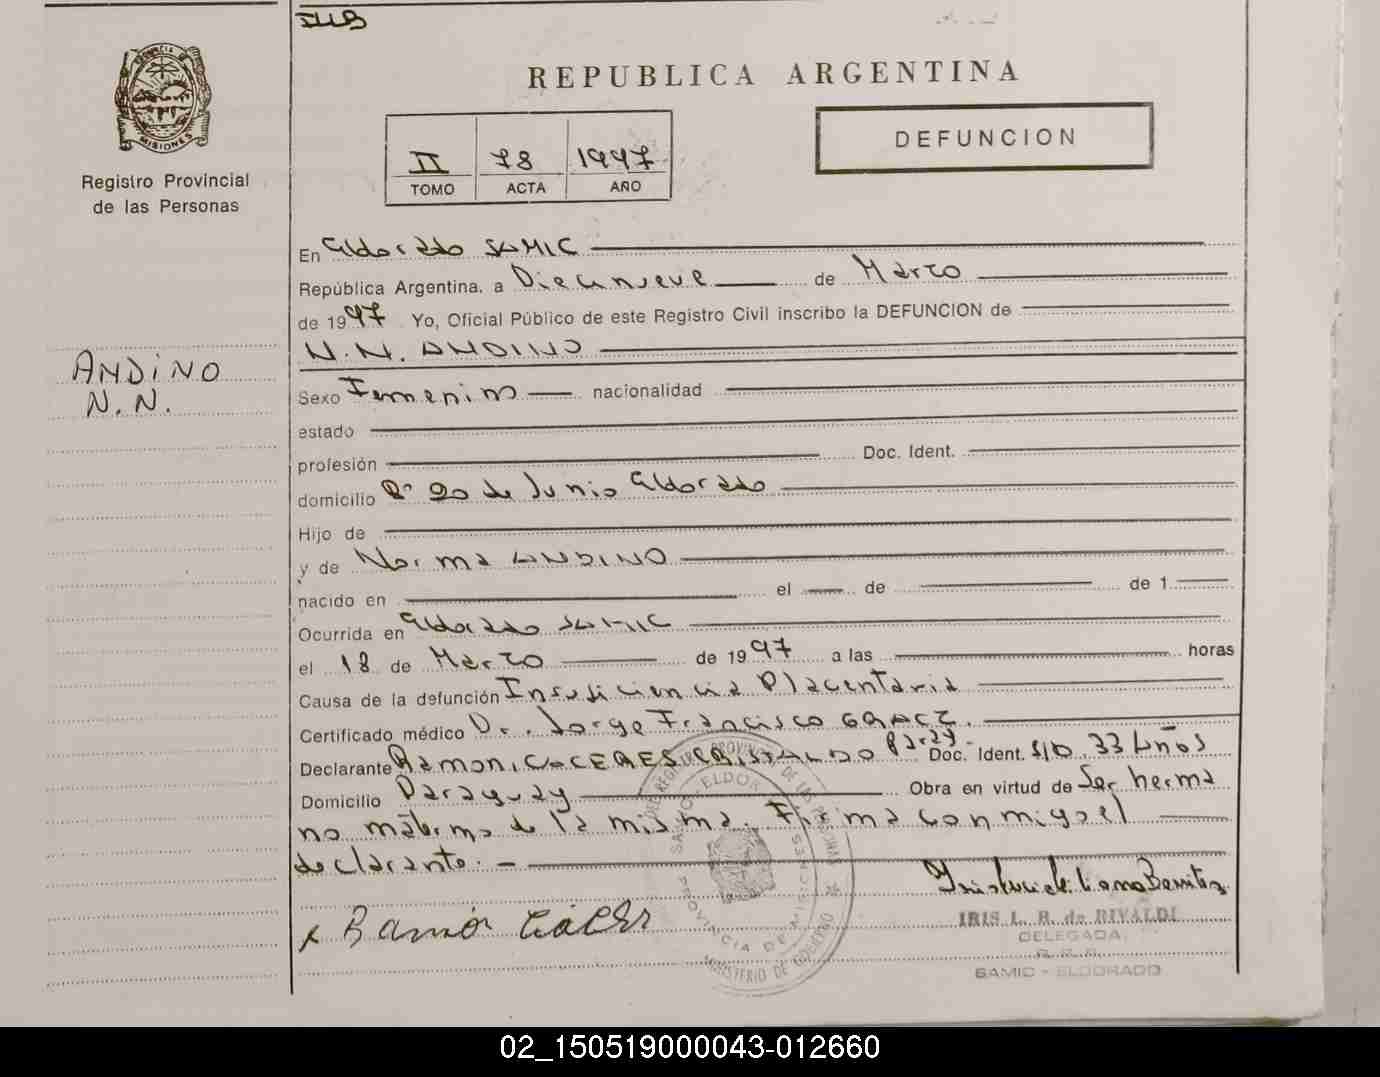 REPUBLICA ARGENTINA
PROVINCIA DE
MISIONES
Registro Provincial
de las Personas
II 78 1997
TOMO ACTA AÑO
DEFUNCION
ANDINO
N.N.
En Eldorado SAMIC
República Argentina, a Diecinueve de Marzo
de 1997 Yo, Oficial Público de este Registro Civil inscribo la DEFUNCION de
N.N. ANDINO
Sexo Femenino nacionalidad
estado
profesión Doc. Ident.
domicilio Bº 20 de Junio Eldorado
Hijo de
y de Norma ANDINO
nacido en el de de 1
Ocurrida en Eldorado SAMIC
el 18 de Marzo de 1997 a las horas
Causa de la defunción Insuficiencia Placentaria
Certificado médico Dr. Jorge Francisco
Declarante Ramon CACERES CRISTALDO Doc. Ident. S/D. 33 Años
Domicilio Paraguay Obra en virtud de Ser herma
no materno de la misma. Firma conmigo el
declarante. -
x Ramón
IRIS L. B. de RIVALDI
DELEGADA
SAMIC - ELDORADO
PROVINCIA DE MISIONES
MINISTERIO DE GOBIERNO
02_150519000043-012660